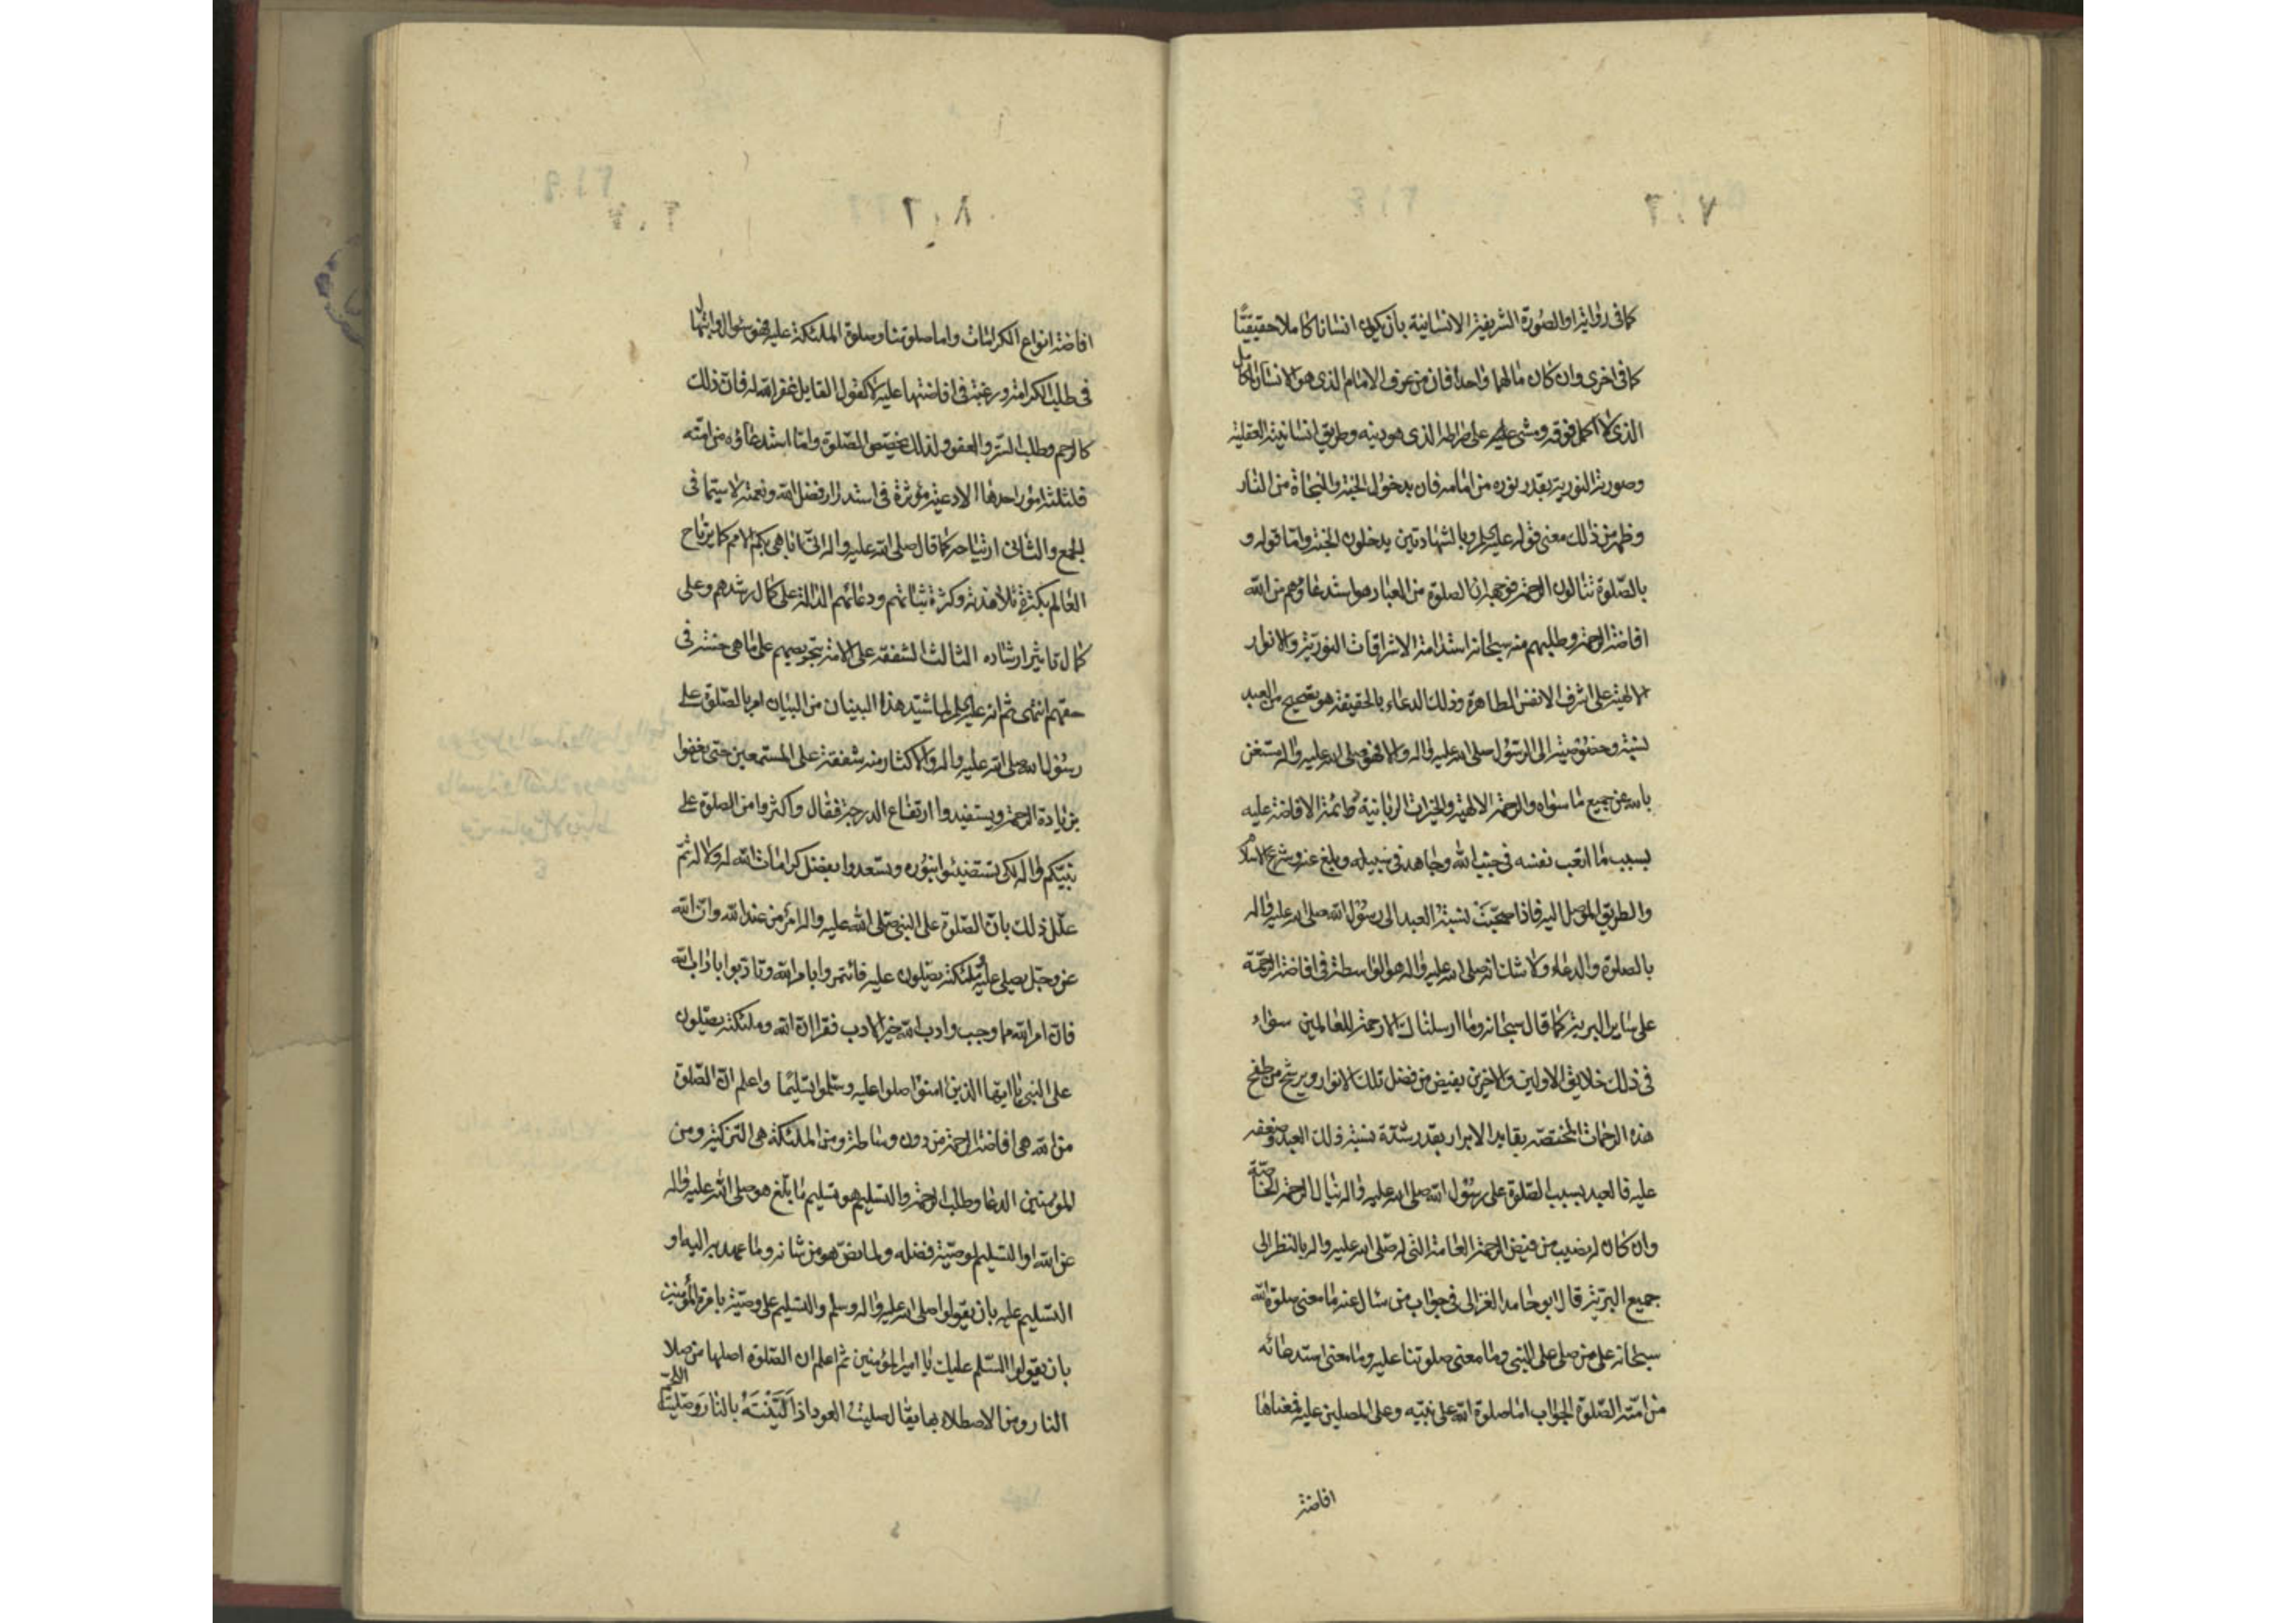 كما فى رواية او الصورة الشريفة الانسانية بان يكون انسانا كاملا حقيقيا
كما فى اخرى وان كان مالهما واحدا فان من عرف الامام الذى هو الانسان الكامل
الذى لا اكمل فوقه ومشى على صراطه الذى هو دينه وطريق انسانيته العقلية
وصورته النورية بقدر نوره من امامه فان بدخول الجنة والنجاة من النار
وظهر من ذلك معنى قوله عليه السلم وبالشهادتين يدخلون الجنة واما قوله و
بالصلوة تنالون الرحمة فوجهه ان الصلوة من العباد هو استدعاؤهم من الله
افاضة الرحمة وطلبهم منه سبحانه استدامة الاشراقات النورية والانوار
الالهية على اشرف الانفس الطاهرة وذلك الدعاء بالحقيقة هو تصحيح من العبد
نسبة وخصوصية الى الرسول صلى الله عليه واله والا فهو صلى الله عليه واله مستغن
بالله عن جميع ما سواه والرحمة الالهية والخيرات الربانية دائمة الافاضة عليه
بسبب ما اتعب نفسه فى جنب الله وجاهد فى سبيله وبلغ عنه وشرع الاسلام
والطريق الموصل اليه فاذا صححت نسبة العبد الى رسول الله صلى الله عليه واله
بالصلوة والدعاء ولا شك انه صلى الله عليه واله هو الواسطة فى افاضة الرحمة
على ساير البرية كما قال سبحانه وما ارسلناك الا رحمة للعالمين سواء
فى ذلك خلايق الاولين والاخرين يفيض من فضل تلك الانوار ويرشح من طفح
هذه الرحمات المختصة بقايد الابرار بقدر شدة نسبة ذلك العبد وضعفه
عليه فالعبد بسبب الصلوة على رسول الله صلى الله عليه واله ينال الرحمة الخاصة
وان كان له نصيب من فيض الرحمة العامة التى له صلى الله عليه واله بالنظر الى
جميع البرية قال ابو حامد الغزالى فى جواب من سال عنه ما معنى صلوة الله
سبحانه على من صلى على النبى وما معنى صلوتنا عليه وما معنى استدعائه
من امته الصلوة الجواب اما صلوة الله على نبيه وعلى المصلين عليه فمعناها
افاضة
افاضة انواع الكرامات واما صلوتنا وصلوة الملئكة عليه فهو سؤال وابتهال
فى طلب الكرامة ورغبة فى افاضتها عليه لا كقول القايل غفر الله له فان ذلك
كالرحم وطلب الستر والعفو ولذلك تخصص الصلوة واما استدعاؤه من امته
فلثلثة امور احدها الادعية مؤثرة فى استدرار فضل الله ونعمته لا سيما فى
الجمع والثانى ارتياحه كما قال صلى الله عليه واله انى اباهى بكم الامم كما يرتاح
العالم بكثرة تلامذته وكثرة ثنائهم ودعائهم الدالة على كمال رشدهم وعلى
كمال تاثير ارشاده الثالث الشفقة على الامة بتحريصهم على ما هى حسنة فى
حقهم انتهى ثم انه عليه السلم لما شيد هذا البنيان من البيان امر بالصلوة على
رسول الله صلى الله عليه واله والاكثار منه شفقة على المستمعين حتى
بزيادة الرحمة ويستفيدوا ارتفاع الدرجة فقال واكثروا من الصلوة على
نبيكم واله لكى تستضيئوا بنوره وتسعدوا بفضل كرامات الله له ولاله ثم
علل ذلك بان الصلوة على النبى صلى الله عليه واله امر من عند الله وان الله
عز وجل يصلى عليه وملئكته يصلون عليه فائتمروا بامر الله وتادبوا باداب الله
فان امر الله مما وجب وادب الله خير الادب فقرا ان الله وملئكته يصلون
على النبى يا ايها الذين امنوا صلوا عليه وسلموا تسليما واعلم ان الصلوة
من الله هى افاضة الرحمة من دون وساطة ومن الملئكة هى التزكية ومن
المؤمنين الدعا وطلب الرحمة والتسليم هو تسليم ما بلغ هو صلى الله عليه واله
عن الله او التسليم لوصيه فضله ولما نص هو من شانه وما عهد به اليه او
التسليم عليه بان يقولوا صلى الله عليه واله وسلم والتسليم على وصيه بامرة المؤمنين
بان يقولوا السلم عليك يا امير المؤمنين ثم اعلم ان الصلوة اصلها من صلا
النار ومن الاصطلاء بها يقال صليت العود اذا لينته بالنار وصليت اللحم